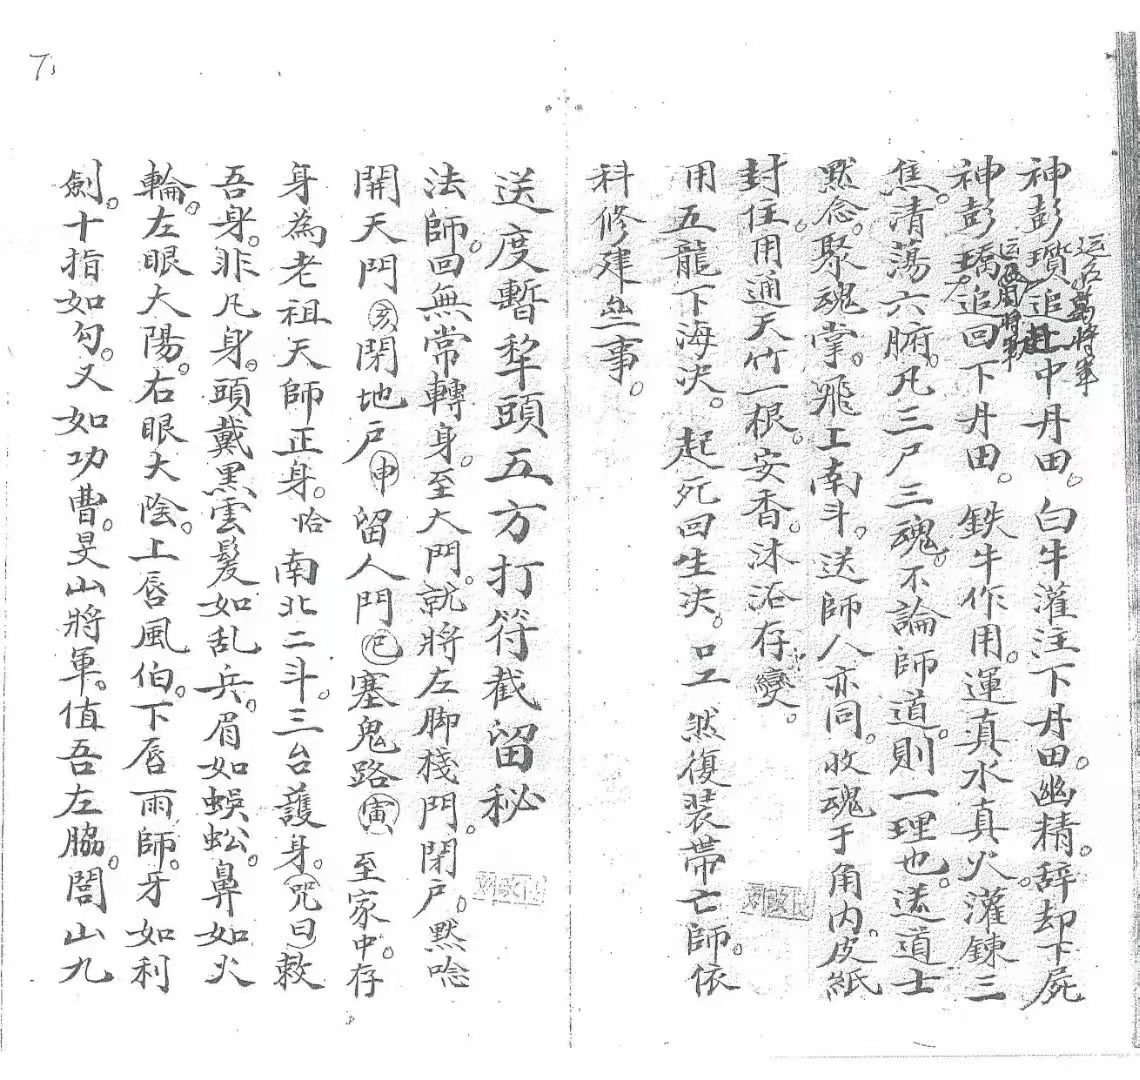 神彭瓚追赴中丹田。白牛灌注下丹田。幽精。辞却下屍
神彭璚追回下丹田。鉄牛作用。運真水真火。灌鍊三
焦。清蕩六腑。凡三尸三魂。不論師道。則一理也。送道士
黙念。聚魂掌。飛上南斗。送師人亦同。收魂于角内。皮紙
封住。用通天竹一根。安香。沐浴存變。
用五龍下海决。起死回生决。口工 然復装帶亡師。依
科修建㕕事。
送度暫犂頭五方打符截留秘
法師。回無常轉身。至大門。就將左脚棧門。閉户。黙唸
開天門亥閉地户申留人門巳塞鬼路寅至家中。存
身為老祖天師正身。哈南北二斗。三台護身。咒曰敕
吾身。非凡身。頭戴黑雲髪如乱兵。眉如蜈蚣。鼻如火
輪。左眼太陽。右眼太陰。上唇風伯。下唇雨師。牙如利
劍。十指如勾。又如功曹。旻山將軍。值吾左脇。閭山九